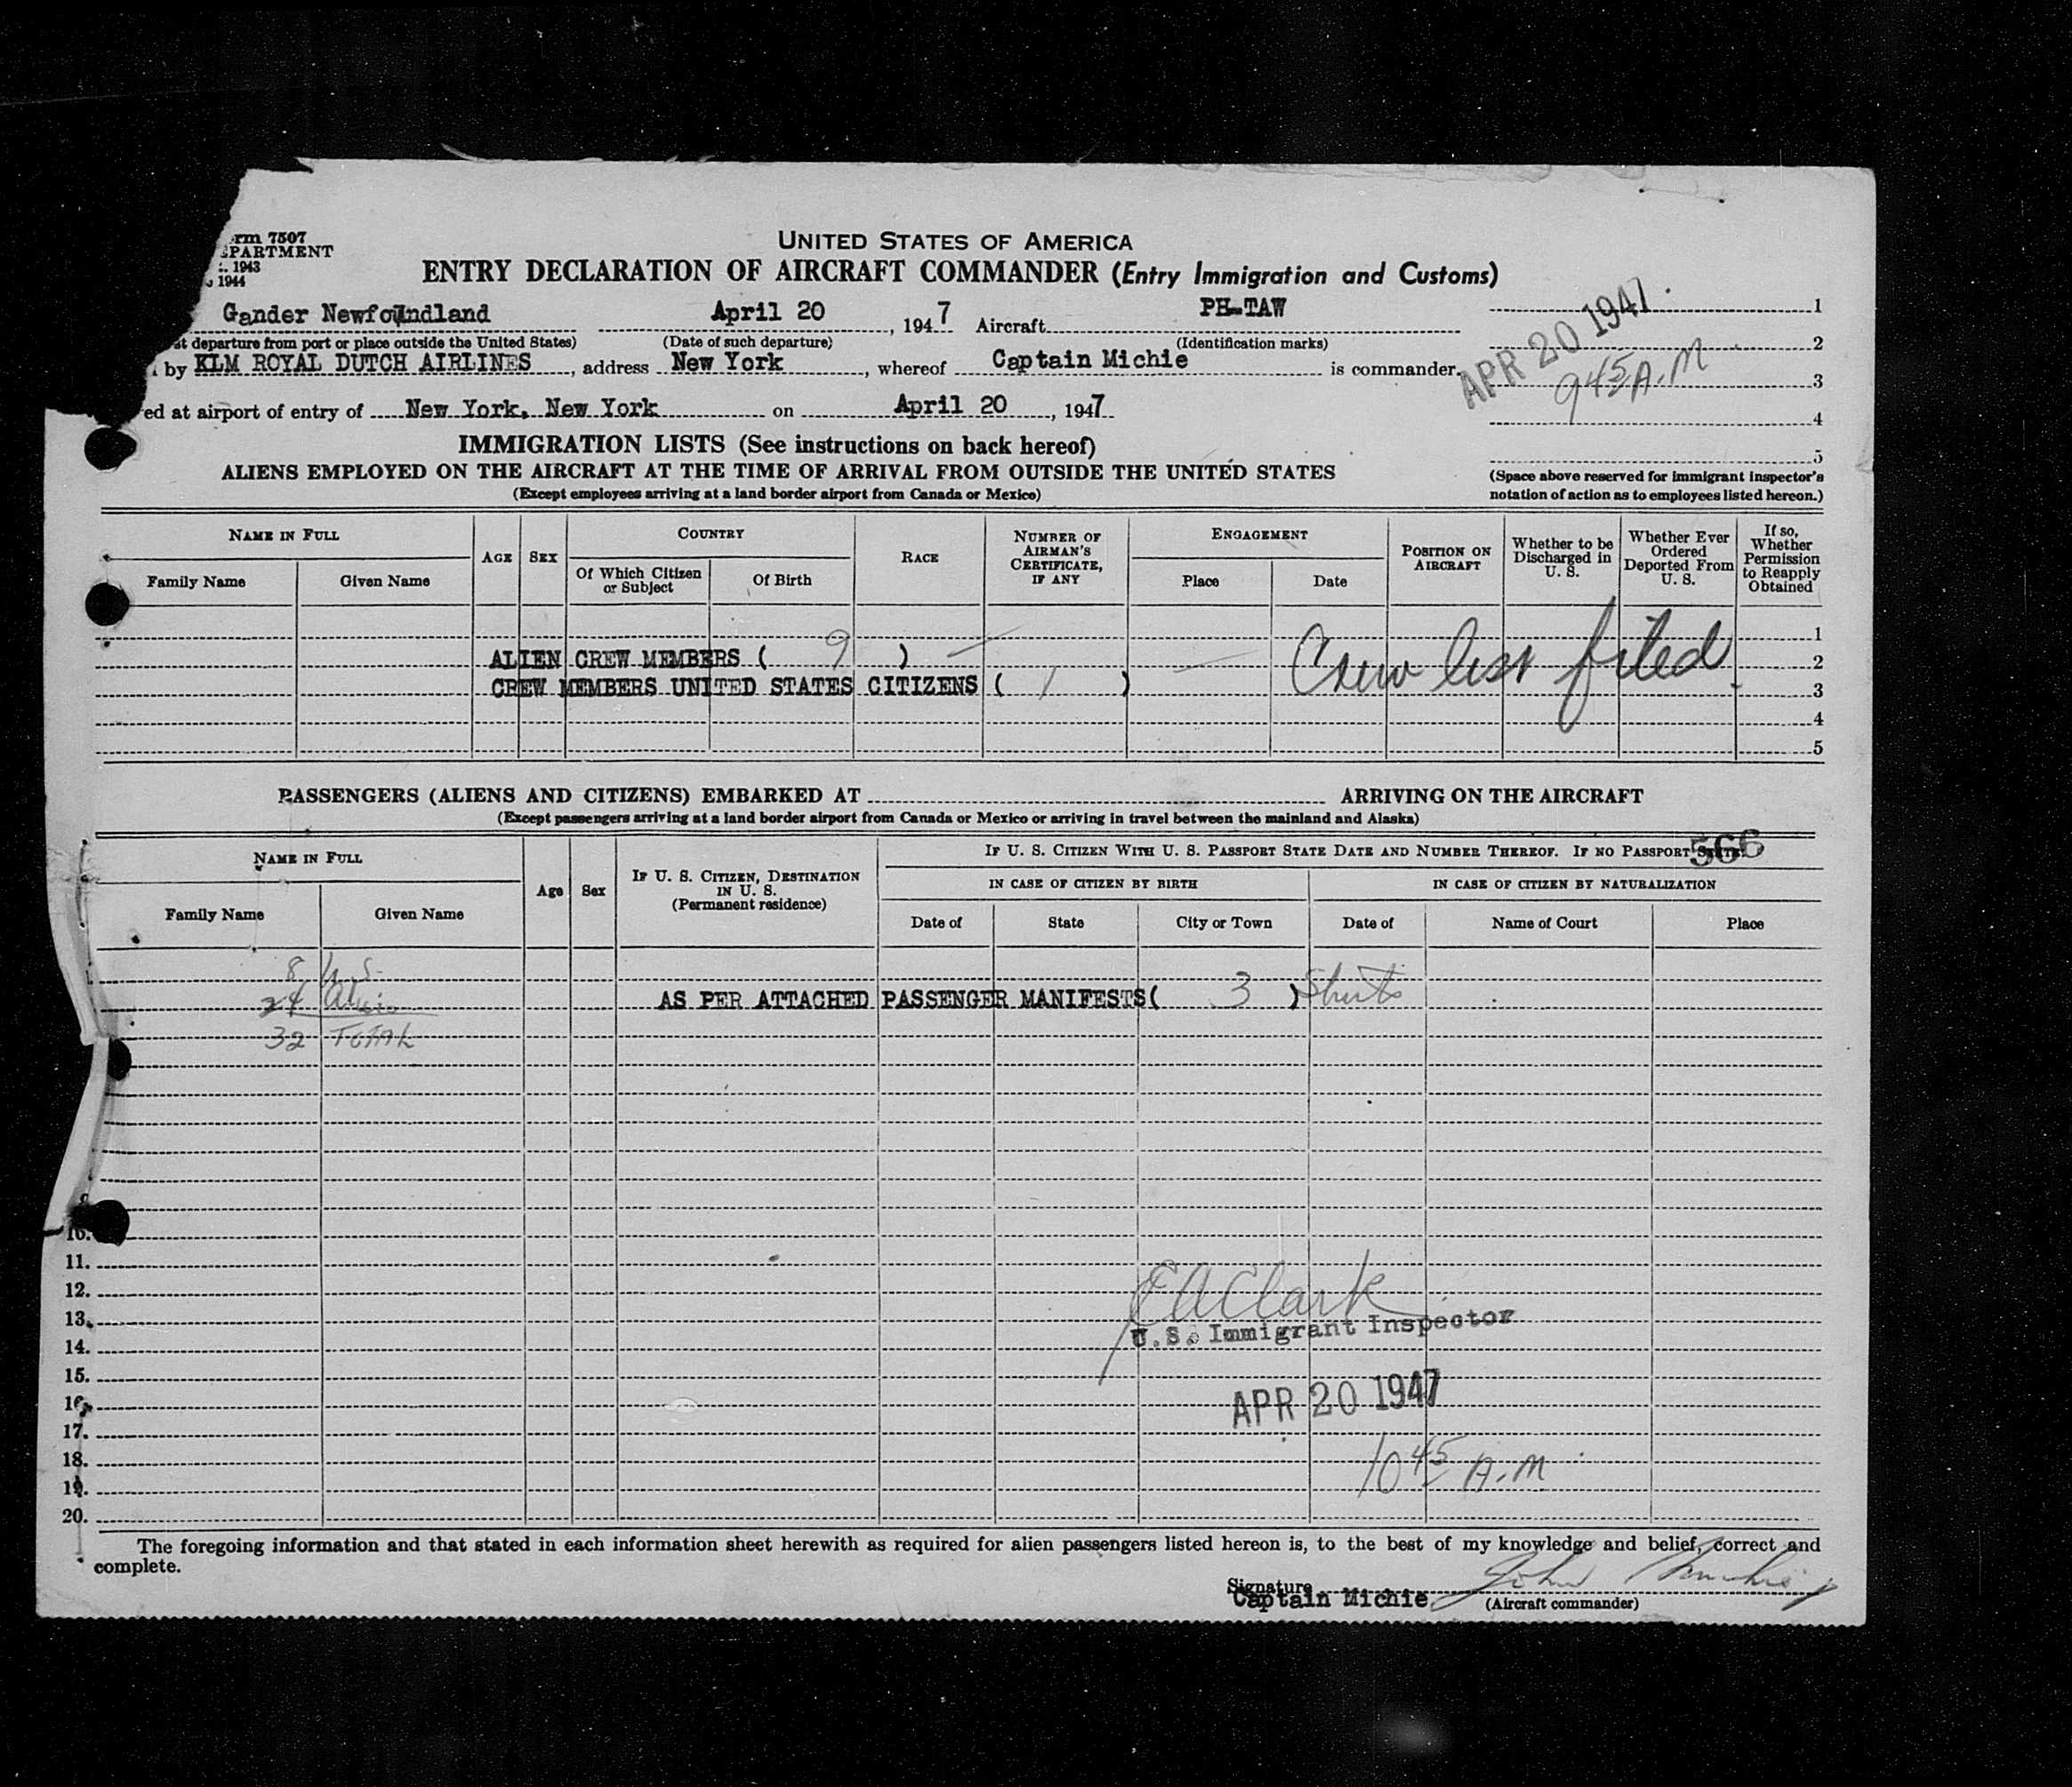 rm 7507
PARTMENT
1943
1944
UNITED STATES OF AMERICA
ENTRY DECLARATION OF AIRCRAFT COMMANDER (Entry Immigration and Customs)
Gander Newfoundland April 20, 1947 Aircraft PH-TAW
at departure from port or place outside the United States) (Date of such departure) (Identification marks)
by KLM ROYAL DUTCH AIRLINES, address New York, whereof Captain Michie is commander,
ed at airport of entry of New York, New York on April 20, 1947
1
2
3
4
5
APR 20 1947
9 45 A.M
(Space above reserved for immigrant inspector's
notation of action as to employees listed hereon.)
IMMIGRATION LISTS (See instructions on back hereof)
ALIENS EMPLOYED ON THE AIRCRAFT AT THE TIME OF ARRIVAL FROM OUTSIDE THE UNITED STATES
(Except employees arriving at a land border airport from Canada or Mexico)
NAME IN FULL
Family Name
Given Name
AGE
SEX
COUNTRY
Of Which Citizen
or Subject
Of Birth
RACE
NUMBER OF
AIRMAN'S
CERTIFICATE,
IF ANY
ENGAGEMENT
Place
Date
POSITION ON
AIRCRAFT
Whether to be
Discharged in
U. S.
Whether Ever
Ordered
Deported From
U. S.
If so,
Whether
Permission
to Reapply
Obtained
1
ALIEN CREW MEMBERS ( 9 ) Crew list filed 2
CREW MEMBERS UNITED STATES CITIZENS ( 1 ) 3
4
5
PASSENGERS (ALIENS AND CITIZENS) EMBARKED AT ARRIVING ON THE AIRCRAFT
(Except passengers arriving at a land border airport from Canada or Mexico or arriving in travel between the mainland and Alaska)
NAME IN FULL
Family Name
Given Name
Age
Sex
IF U. S. CITIZEN, DESTINATION
IN U. S.
(Permanent residence)
IF U. S. CITIZEN WITH U. S. PASSPORT STATE DATE AND NUMBER THEREOF. IF NO PASSPORT
566
IN CASE OF CITIZEN BY BIRTH
IN CASE OF CITIZEN BY NATURALIZATION
Date of
State
City or Town
Date of
Name of Court
Place
8 U.S.
24 AS PER ATTACHED PASSENGER MANIFESTS( 3 )
32 TOTAL
10.
11.
12.
13.
14.
15.
16.
17.
18.
19.
20.
EA Clark
U.S. Immigrant Inspector
APR 20 1947
10 45 A.M
The foregoing information and that stated in each information sheet herewith as required for alien passengers listed hereon is, to the best of my knowledge and belief, correct and
complete.
Signature John Michie
Captain Michie (Aircraft commander)